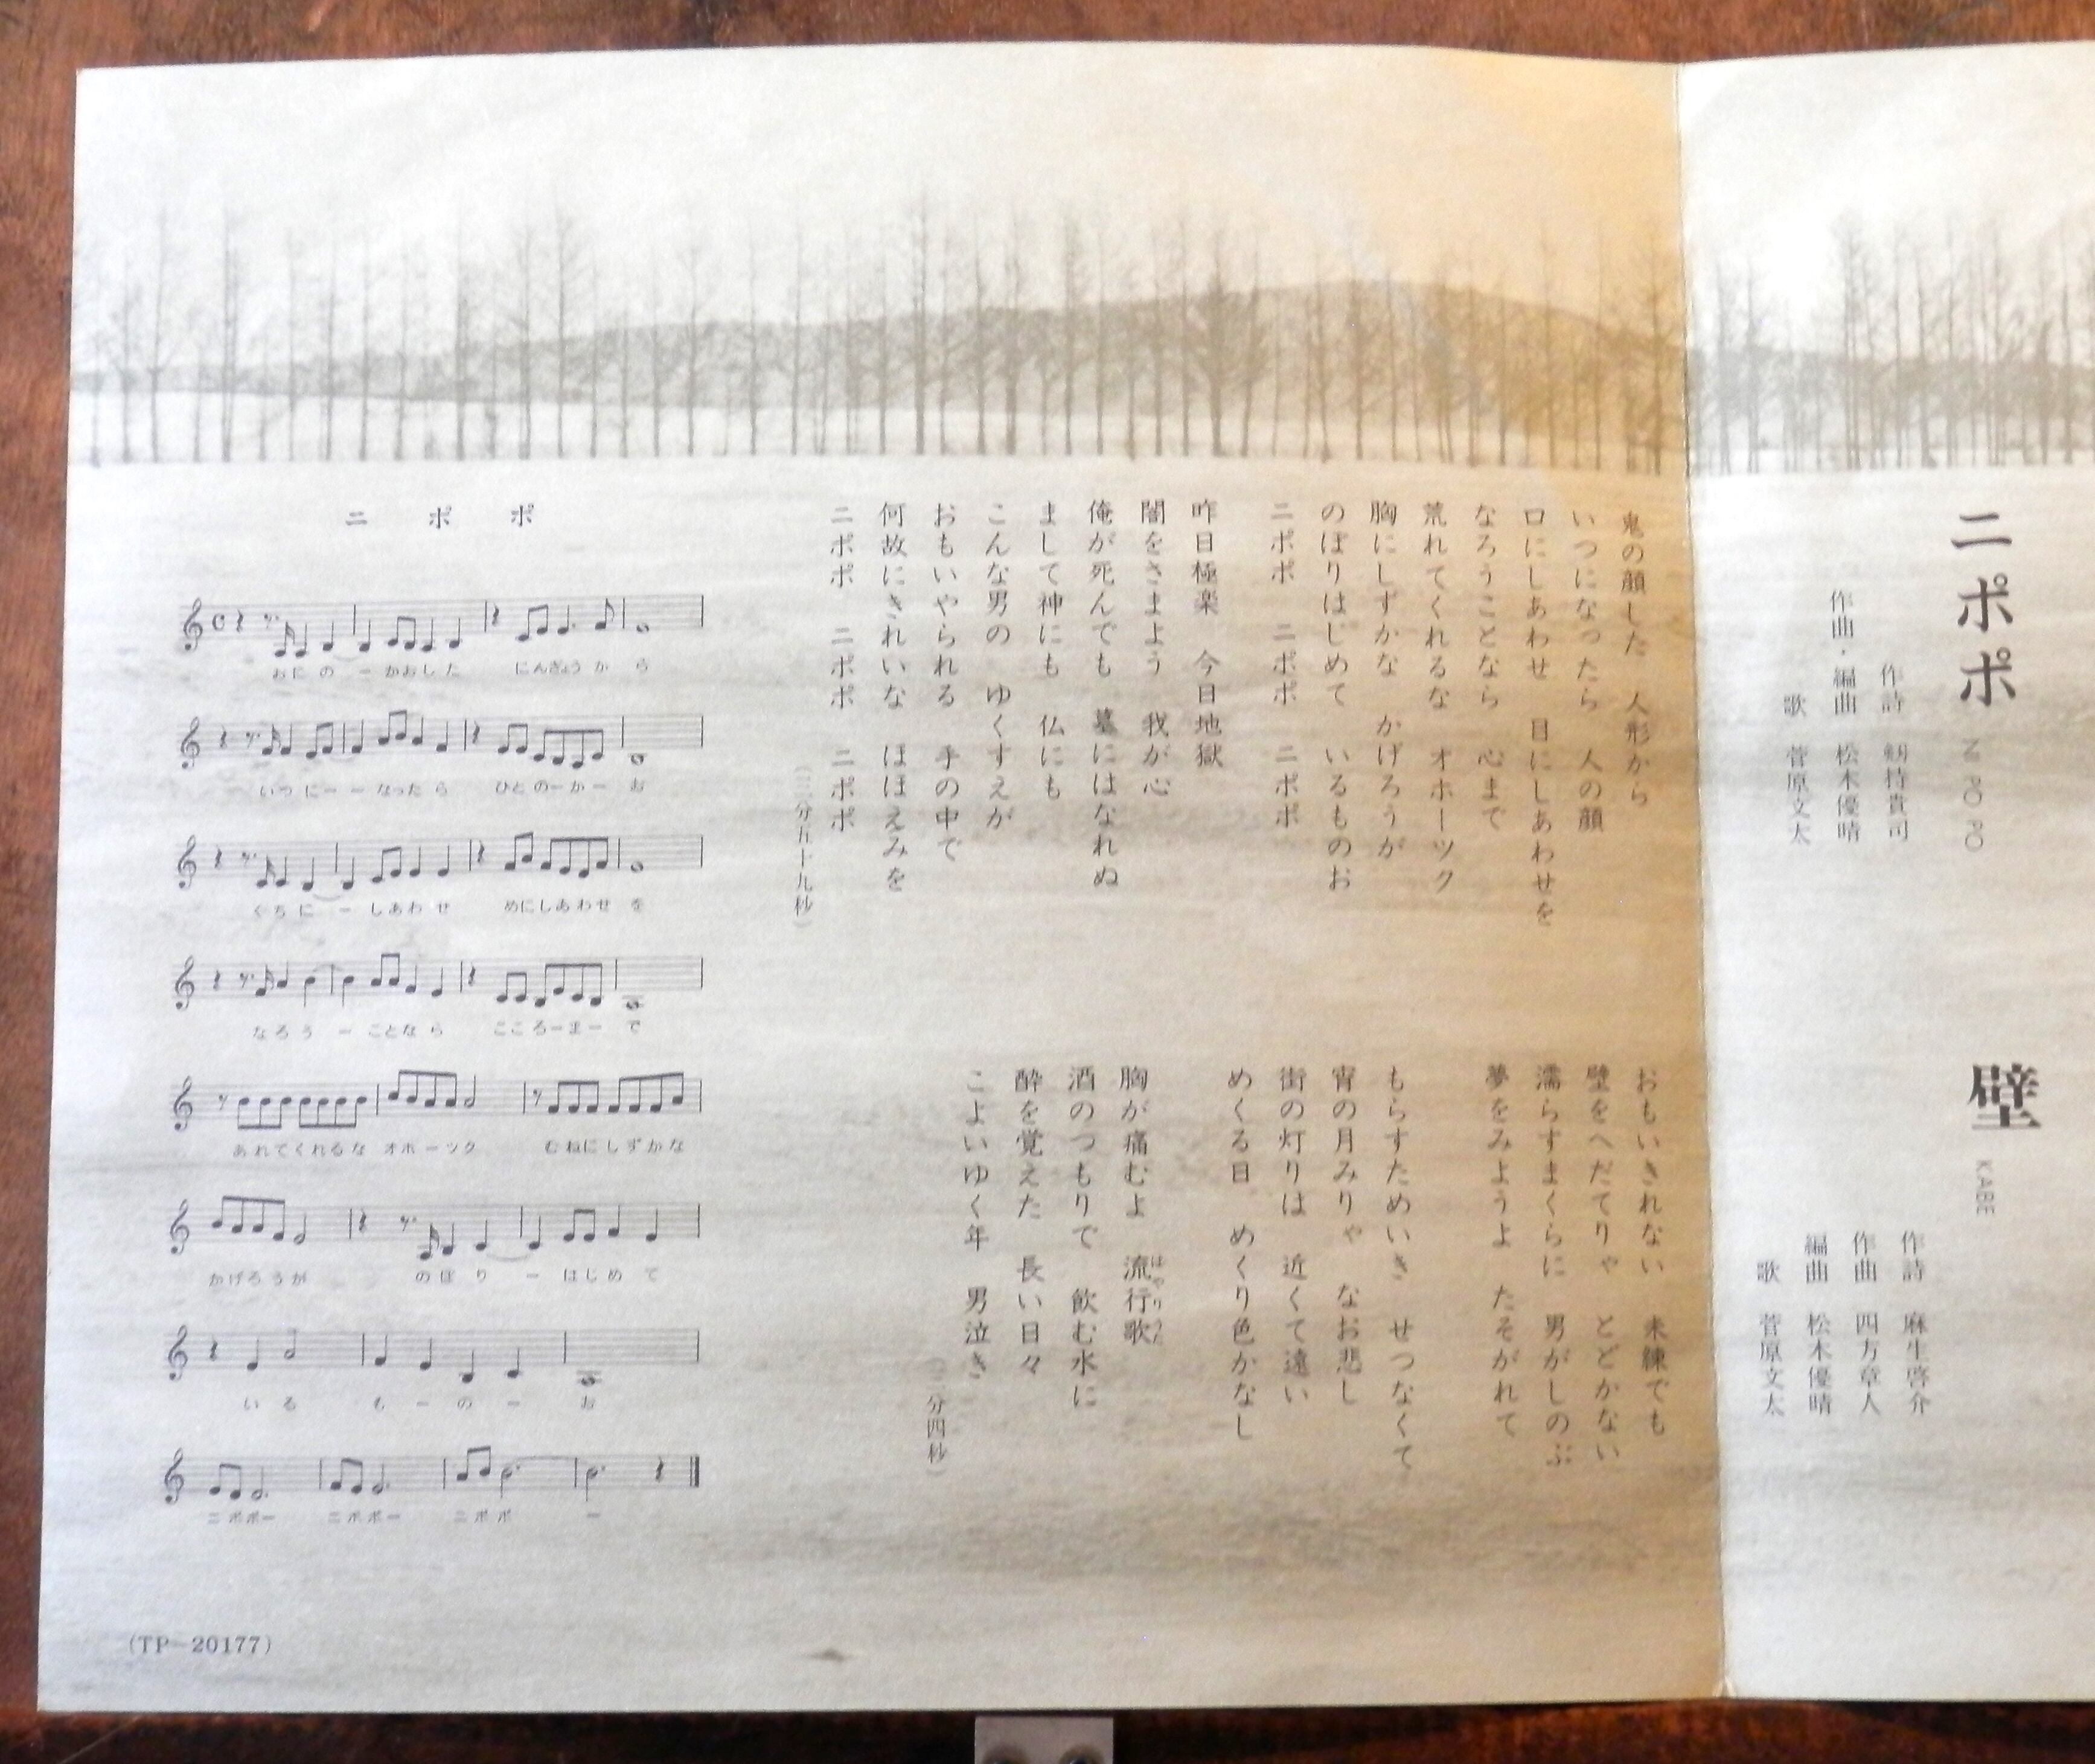 ニポポ
NI PO PO
作詩 剱持貴司
作曲・編曲 松木優晴
歌 菅原文太
鬼の顔した 人形から
いつになったら 人の顔
口にしあわせ 目にしあわせを
なろうことなら 心まで
荒れてくれるな オホーツク
胸にしずかな かげろうが
のぼりはじめて いるものお
ニポポ ニポポ ニポポ
昨日極楽 今日地獄
闇をさまよう 我が心
俺が死んでも 墓にはなれぬ
まして神にも 仏にも
こんな男の ゆくすえが
おもいやられる 手の中で
何故にきれいな ほほえみを
ニポポ ニポポ ニポポ
(三分五十九秒)
壁
KABE
作詩 麻生啓介
作曲 四方章人
編曲 松木優晴
歌 菅原文太
おもいきれない 未練でも
壁をへだてりゃ とどかない
濡らすまくらに 男がしのぶ
夢をみようよ たそがれて
もらすためいき せつなくて
宵の月みりゃ なお悲し
街の灯りは 近くて遠い
めくる日 めくり色かなし
胸が痛むよ 流行歌
はやりうた
酒のつもりで 飲む水に
酔を覚えた 長い日々
こよいゆく年 男泣き
分四秒)
ニポポ
おに の ー かおした にんぎょう か ら
いつ にー ー なった ら ひと のーかー お
くち に ー しあわ せ めにしあわせ を
なろ う ー ことな ら ここ ろーまー で
あれてくれるな オホーツク むねにしずかな
かげろうが のぼ り ー はじめ て
い る も ー の ー お
ニポポー ニポポー ニポポ ー
(TP-20177)